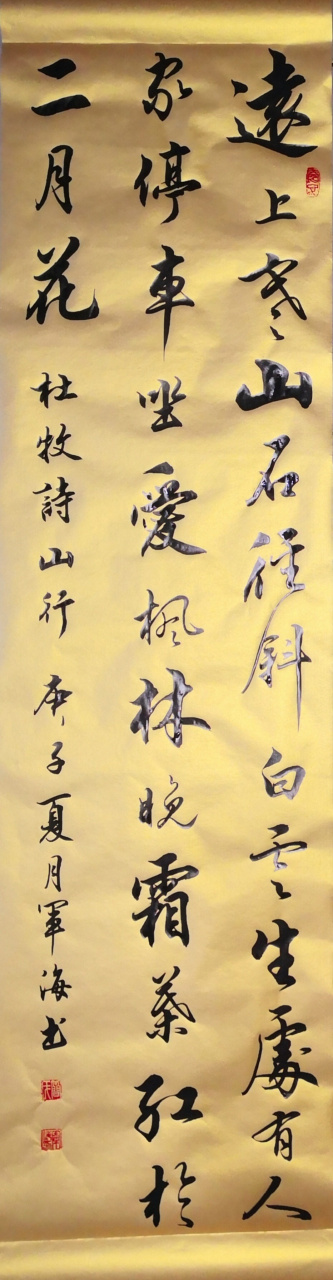 遠上寒山石徑斜白雲生處有人
家停車坐愛楓林晚霜葉紅於
二月花
杜牧詩山行 庚子夏月軍海書